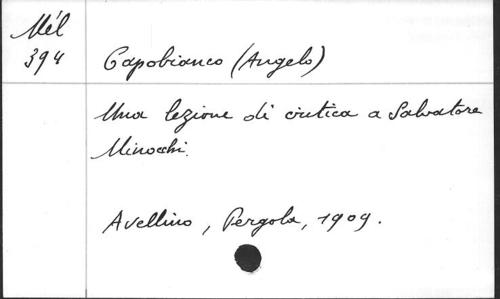 Mél
394
Capobianco (Angelo)
Una lezione di critica a Salvatore
Minocchi.
Avellino, Pergola, 1909.